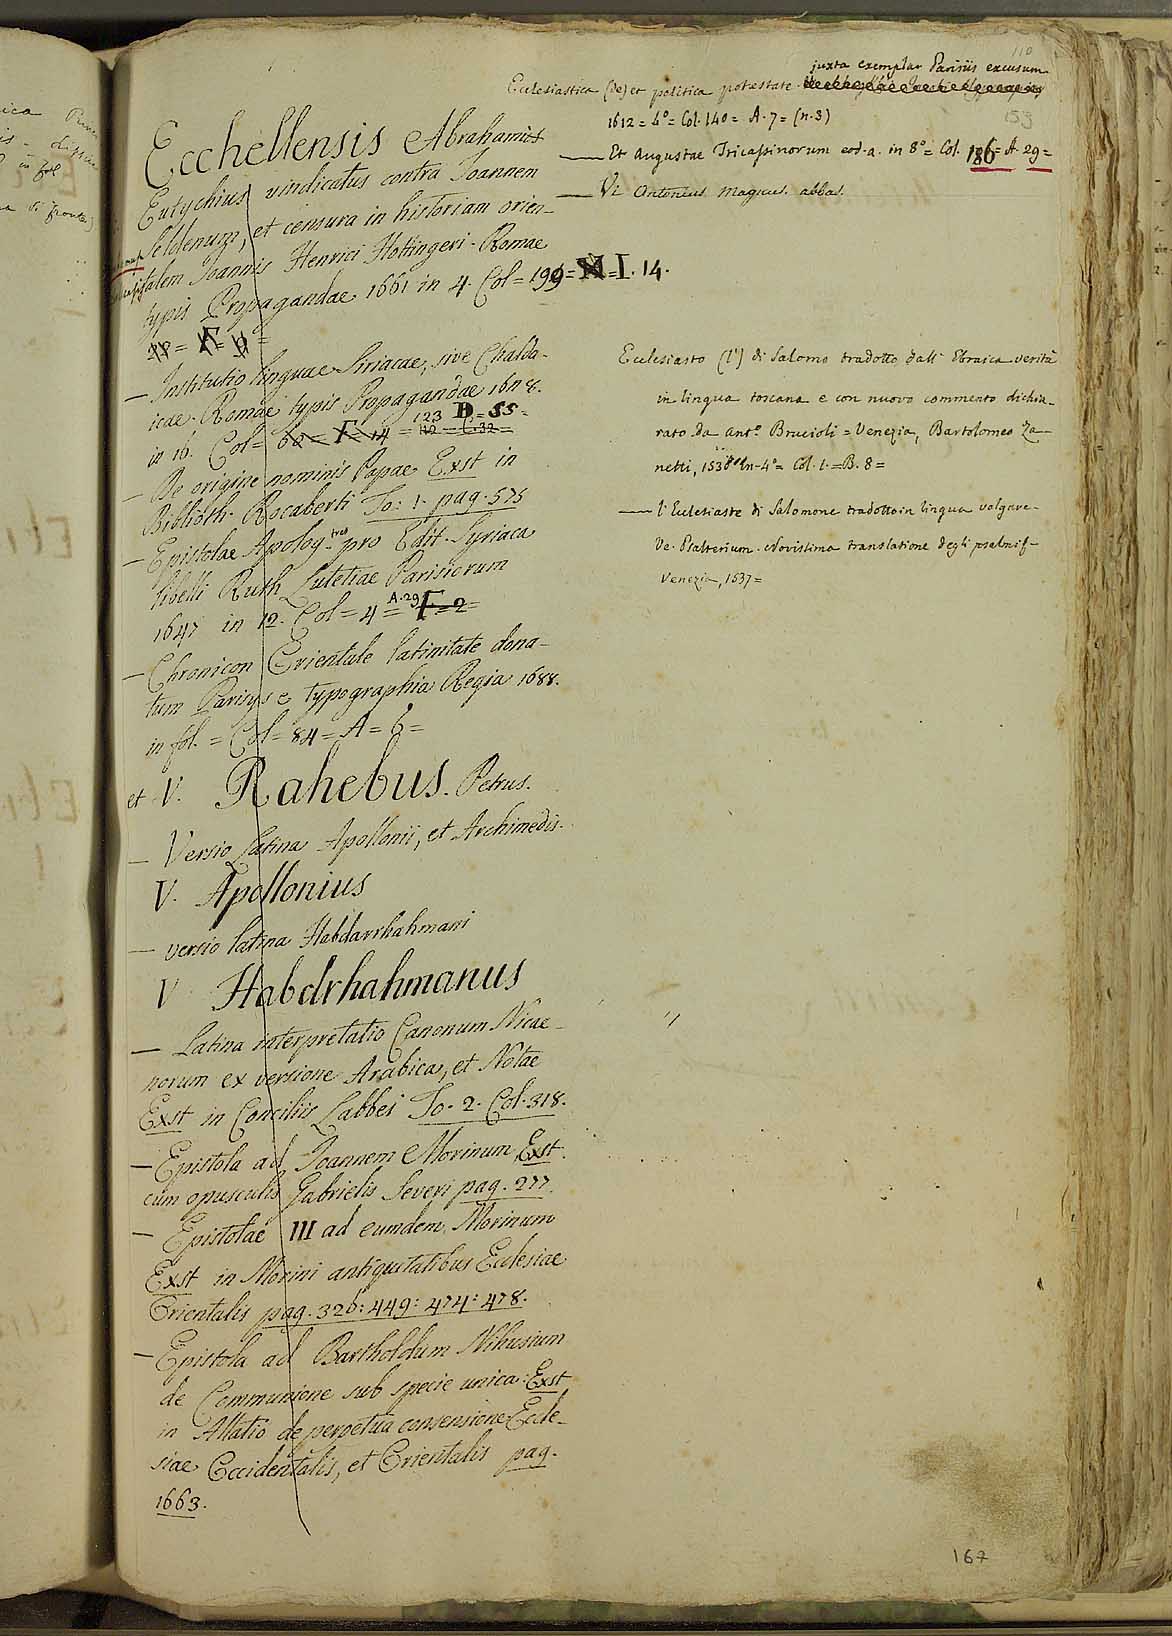 Ecchellensis Abrahamus
Eutychius vindicatus contra Joannem
Seldenum, et censura in historiam orien-
talem Joannis Henrici Hottingeri - Romae
typis Propagandae 1661 in 4. Col = 199 = I. 14.
— Institutio linguae Siriacae, sive Chalda-
icae - Romae typis Propagandae 1628.
in 16. Col = 60 = F = 14 = 123 D = 55 =
— De origine nominis Papae Exst in
Biblioth. Rocaberti To: 1. pag. 575
— Epistolae Apolog. tres pro Edit. Syriaca
libelli Ruth Lutetiae Parisiorum
1647 in 12. Col = 4 = A. 29 F = 2 =
— Chronicon Orientale latinitate dona-
tum Parisys e typographia Regia 1688.
in fol. = Col = 84 = A = 6 =
et V. Rahebus. Petrus.
— Versio Latina Apollonii, et Archimedis.
V. Apollonius
— versio latina Habdarrhahmani
V. Habdrhahmanus
— Latina interpretatio Canonum Nicae-
norum ex versione Arabica, et Notae
Exst in Conciliis Labbei To. 2. Col. 318.
— Epistola ad Joannem Morinum Exst.
cum opusculis Gabrielis Severi pag. 277.
— Epistolae III ad eumdem Morinum
Exst in Morini antiquitatibus Ecclesiae
Orientalis pag. 326: 449: 474: 478.
— Epistola ad Bartholdum Nihusium
de Communione sub specie unica. Exst
in Allatio de perpetua consensione Eccle-
siae Occidentalis, et Orientalis pag.
1663.
110
juxta exemplar Parisiis excusum
Ecclesiastica (De) et politica potestate
153
1612 = 4º = Col. 140 = A. 7 = (n. 3)
— Et Augustae Tricassinorum eod. a. in 8º = Col. 186 = A. 29 =
— V.
Ecclesiasto (l') di Salomo tradotto dall' Ebraica verità
in lingua toscana e con nuovo commento dichia-
rato da Antº Brucioli = Venezia, Bartolomeo Za-
netti, 1536 in-4º = Col. 1. = B. 8 =
— l'Ecclesiaste di Salomone tradotto in lingua volgare.
Ve. Psalterium. Novissima translatione degli psalmi &
Venezia, 1537 =
167